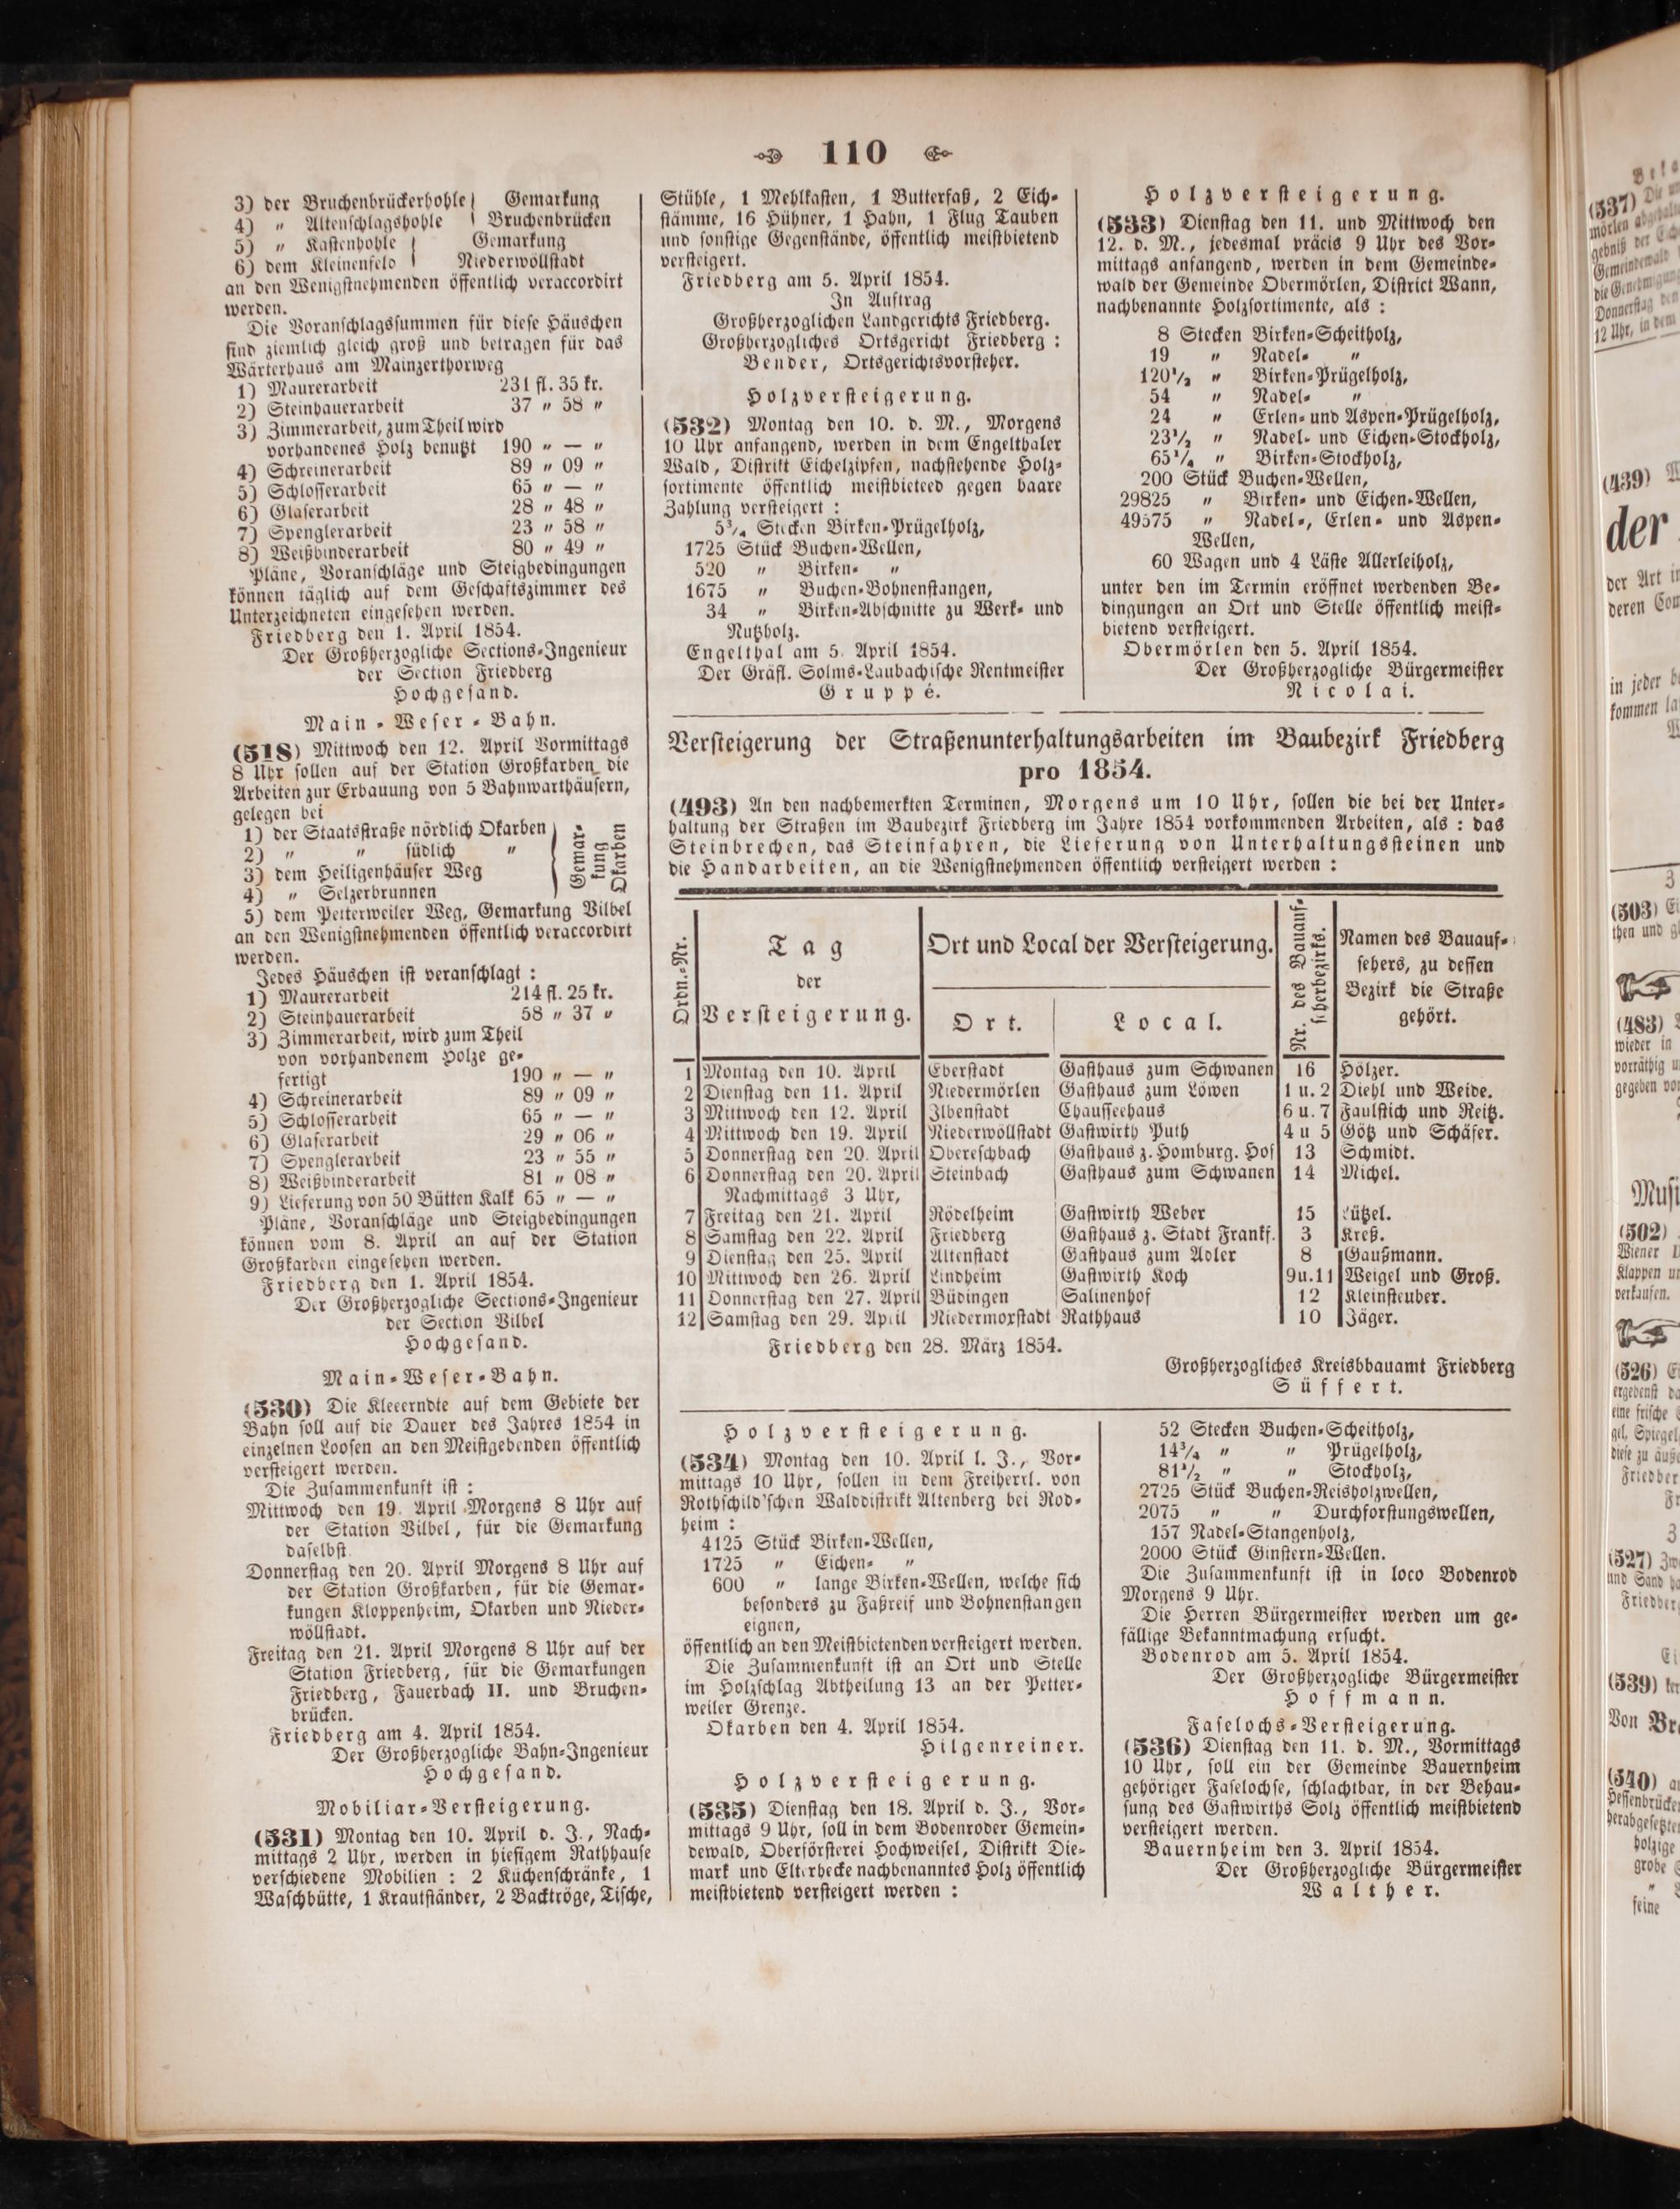 110
3) der Bruchenbrückerhohle } Gemarkung
4) „ Altenschlagshohle } Bruchenbrücken
5) „ Kastenhohle } Gemarkung
6) dem Kleinenfeld } Niederwöllstadt
an den Wenigstnehmenden öffentlich veraccordirt
werden.
Die Voranschlagssummen für diese Häuschen
sind ziemlich gleich groß und betragen für das
Wärterhaus am Mainzerthorweg
1) Maurerarbeit 231 fl. 35 kr.
2) Steinhauerarbeit 37 „ 58 „
3) Zimmerarbeit, zum Theil wird
vorhandenes Holz benutzt 190 „ — „
4) Schreinerarbeit 89 „ 09 „
5) Schlosserarbeit 65 „ — „
6) Glaserarbeit 28 „ 48 „
7) Spenglerarbeit 23 „ 58 „
8) Weißbinderarbeit 80 „ 49 „
Pläne, Voranschläge und Steigbedingungen
können täglich auf dem Geschäftszimmer des
Unterzeichneten eingesehen werden.
Friedberg den 1. April 1854.
Der Großherzogliche Sections-Ingenieur
der Section Friedberg
Hochgesand.
Main-Weser-Bahn.
(518) Mittwoch den 12. April Vormittags
8 Uhr sollen auf der Station Großkarben die
Arbeiten zur Erbauung von 5 Bahnwarthäusern,
gelegen bei
1) der Staatsstraße nördlich Okarben
2) „ „ südlich „
3) dem Heiligenhäuser Weg
4) „ Selzerbrunnen
Gemar-
kung
Okarben
5) dem Petterweiler Weg, Gemarkung Vilbel
an den Wenigstnehmenden öffentlich veraccordirt
werden.
Jedes Häuschen ist veranschlagt :
1) Maurerarbeit 214 fl. 25 kr.
2) Steinhauerarbeit 58 „ 37 „
3) Zimmerarbeit, wird zum Theil
von vorhandenem Holze ge-
fertigt 190 „ — „
4) Schreinerarbeit 89 „ 09 „
5) Schlosserarbeit 65 „ — „
6) Glaserarbeit 29 „ 06 „
7) Spenglerarbeit 23 „ 55 „
8) Weißbinderarbeit 81 „ 08 „
9) Lieferung von 50 Bütten Kalk 65 „ — „
Pläne, Voranschläge und Steigbedingungen
können vom 8. April an auf der Station
Großkarben eingesehen werden.
Friedberg den 1. April 1854.
Der Großherzogliche Sections-Ingenieur
der Section Vilbel
Hochgesand.
Main-Weser-Bahn.
(530) Die Kleeerndte auf dem Gebiete der
Bahn soll auf die Dauer des Jahres 1854 in
einzelnen Loosen an den Meistgebenden öffentlich
versteigert werden.
Die Zusammenkunft ist :
Mittwoch den 19. April Morgens 8 Uhr auf
der Station Vilbel, für die Gemarkung
daselbst.
Donnerstag den 20. April Morgens 8 Uhr auf
der Station Großkarben, für die Gemar-
kungen Kloppenheim, Okarben und Nieder-
wöllstadt.
Freitag den 21. April Morgens 8 Uhr auf der
Station Friedberg, für die Gemarkungen
Friedberg, Fauerbach II. und Bruchen-
brücken.
Friedberg am 4. April 1854.
Der Großherzogliche Bahn-Ingenieur
Hochgesand.
Mobiliar-Versteigerung.
(531) Montag den 10. April d. J., Nach-
mittags 2 Uhr, werden in hiesigem Rathhause
verschiedene Mobilien : 2 Küchenschränke, 1
Waschbütte, 1 Krautständer, 2 Backtröge, Tische,
Stühle, 1 Mehlkasten, 1 Butterfaß, 2 Eich-
stämme, 16 Hühner, 1 Hahn, 1 Flug Tauben
und sonstige Gegenstände, öffentlich meistbietend
versteigert.
Friedberg am 5. April 1854.
In Auftrag
Großherzoglichen Landgerichts Friedberg.
Großherzogliches Ortsgericht Friedberg :
Bender, Ortsgerichtsvorsteher.
Holzversteigerung.
(532) Montag den 10. d. M., Morgens
10 Uhr anfangend, werden in dem Engelthaler
Wald, Distrikt Eichelzipfen, nachstehende Holz-
sortimente öffentlich meistbieteed gegen baare
Zahlung versteigert :
5³/₄ Stecken Birken-Prügelholz,
1725 Stück Buchen-Wellen,
520 „ Birken- „
1675 „ Buchen-Bohnenstangen,
34 „ Birken-Abschnitte zu Werk- und
Nutzholz.
Engelthal am 5. April 1854.
Der Gräfl. Solms-Laubachische Rentmeister
Gruppé.
Holzversteigerung.
(533) Dienstag den 11. und Mittwoch den
12. d. M., jedesmal präcis 9 Uhr des Vor-
mittags anfangend, werden in dem Gemeinde-
wald der Gemeinde Obermörlen, District Wann,
nachbenannte Holzsortimente, als :
8 Stecken Birken-Scheitholz,
19 „ Nadel- „
120¹/₂ „ Birken-Prügelholz,
54 „ Nadel- „
24 „ Erlen- und Aspen-Prügelholz,
23¹/₂ „ Nadel- und Eichen-Stockholz,
65¹/₄ „ Birken-Stockholz,
200 Stück Buchen-Wellen,
29825 „ Birken- und Eichen-Wellen,
49575 „ Nadel-, Erlen- und Aspen-
Wellen,
60 Wagen und 4 Läste Allerleiholz,
unter den im Termin eröffnet werdenden Be-
dingungen an Ort und Stelle öffentlich meist-
bietend versteigert.
Obermörlen den 5. April 1854.
Der Großherzogliche Bürgermeister
Nicolai.
Versteigerung der Straßenunterhaltungsarbeiten im Baubezirk Friedberg
pro 1854.
(493) An den nachbemerkten Terminen, Morgens um 10 Uhr, sollen die bei der Unter-
haltung der Straßen im Baubezirk Friedberg im Jahre 1854 vorkommenden Arbeiten, als : das
Steinbrechen, das Steinfahren, die Lieferung von Unterhaltungssteinen und
die Handarbeiten, an die Wenigstnehmenden öffentlich versteigert werden :
Ordn.-Nr.
Tag
der
Versteigerung.
Ort und Local der Versteigerung.
Ort.
Local.
Nr. des Bauauf-
seherbezirks.
Namen des Bauauf-
sehers, zu dessen
Bezirk die Straße
gehört.
1 Montag den 10. April Eberstadt Gasthaus zum Schwanen 16 Hölzer.
2 Dienstag den 11. April Niedermörlen Gasthaus zum Löwen 1 u. 2 Diehl und Weide.
3 Mittwoch den 12. April Ilbenstadt Chausseehaus 6 u. 7 Faulstich und Reitz.
4 Mittwoch den 19. April Niederwöllstadt Gastwirth Puth 4 u 5 Götz und Schäfer.
5 Donnerstag den 20. April Obereschbach Gasthaus z. Homburg. Hof 13 Schmidt.
6 Donnerstag den 20. April Steinbach Gasthaus zum Schwanen 14 Michel.
Nachmittags 3 Uhr,
7 Freitag den 21. April Rödelheim Gastwirth Weber 15 Lützel.
8 Samstag den 22. April Friedberg Gasthaus z. Stadt Frankf. 3 Kreß.
9 Dienstag den 25. April Altenstadt Gasthaus zum Adler 8 Gaußmann.
10 Mittwoch den 26. April Lindheim Gastwirth Koch 9u.11 Weigel und Groß.
11 Donnerstag den 27. April Büdingen Salinenhof 12 Kleinsteuber.
12 Samstag den 29. April Niedermoxstadt Rathhaus 10 Jäger.
Friedberg den 28. März 1854.
Großherzogliches Kreisbbauamt Friedberg
Süffert.
Holzversteigerung.
(534) Montag den 10. April l. J., Vor-
mittags 10 Uhr, sollen in dem Freiherrl. von
Rothschild'schen Walddistrikt Altenberg bei Rod-
heim :
4125 Stück Birken-Wellen,
1725 „ Eichen- „
600 „ lange Birken-Wellen, welche sich
besonders zu Faßreif und Bohnenstangen
eignen,
öffentlich an den Meistbietenden versteigert werden.
Die Zusammenkunft ist an Ort und Stelle
im Holzschlag Abtheilung 13 an der Petter-
weiler Grenze.
Okarben den 4. April 1854.
Hilgenreiner.
Holzversteigerung.
(535) Dienstag den 18. April d. J., Vor-
mittags 9 Uhr, soll in dem Bodenroder Gemein-
dewald, Oberförsterei Hochweisel, Distrikt Die-
mark und Elterbecke nachbenanntes Holz öffentlich
meistbietend versteigert werden :
52 Stecken Buchen-Scheitholz,
14³/₄ „ „ Prügelholz,
81¹/₂ „ „ Stockholz,
2725 Stück Buchen-Reisholzwellen,
2075 „ „ Durchforstungswellen,
157 Nadel-Stangenholz,
2000 Stück Ginstern-Wellen.
Die Zusammenkunft ist in loco Bodenrod
Morgens 9 Uhr.
Die Herren Bürgermeister werden um ge-
fällige Bekanntmachung ersucht.
Bodenrod am 5. April 1854.
Der Großherzogliche Bürgermeister
Hoffmann.
Faselochs-Versteigerung.
(536) Dienstag den 11. d. M., Vormittags
10 Uhr, soll ein der Gemeinde Bauernheim
gehöriger Faselochse, schlachtbar, in der Behau-
sung des Gastwirths Solz öffentlich meistbietend
versteigert werden.
Bauernheim den 3. April 1854.
Der Großherzogliche Bürgermeister
Walther.
(537) Die
Gemeindewald
Donnerstag den
12 Uhr, in dem
(439)
der
der Art
deren
in jeder
(503)
then und
(483)
wieder in
vorräthig
gegeben
(502)
Wiener
Klappen
verkaufen.
(526)
ergebenst
eine frische
(527)
und Sand
Friedberg
(539)
Von
(540)
holzige
grobe
feine